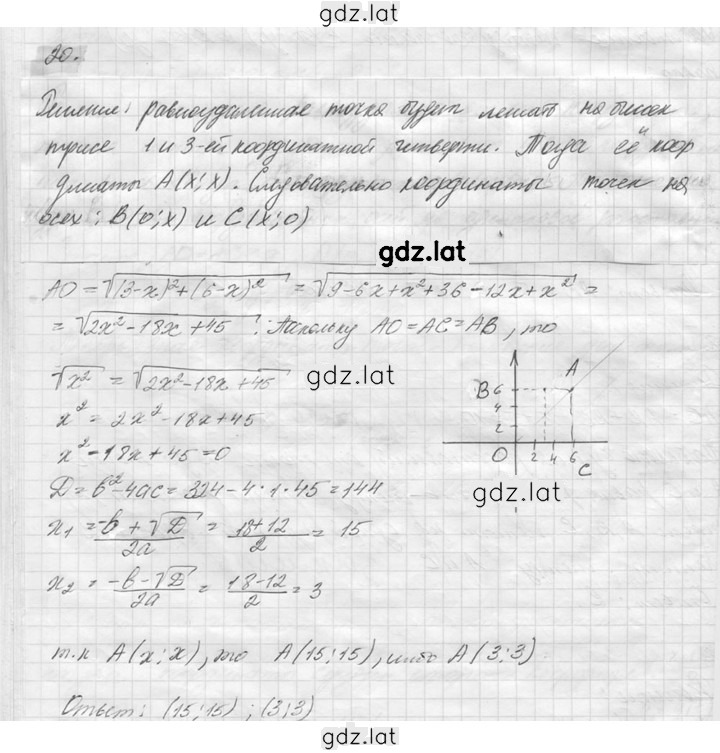 gdz.lat
20.
Решение: равноудаленная точка будет лежать на биссек
трисе 1 и 3-ей координатной четверти. Тогда её коор
динаты A(x;x). Следовательно координаты точек на
осях: B(0;x) и C(x;0)
gdz.lat
AO = √(3-x)²+(6-x)² = √9-6x+x²+36-12x+x² =
= √2x²-18x+45 ; Поскольку AO=AC=AB, то
√x² = √2x²-18x+45
gdz.lat
x² = 2x²-18x+45
x²-18x+45=0
D=b²-4ac=324-4·1·45=144
x₁ = -b+√D/2a = 18+12/2 = 15
x₂ = -b-√D/2a = 18-12/2 = 3
B 6 A
4
2
O 2 4 6 C
gdz.lat
т.к A(x;x), то A(15;15), либо A(3;3)
Ответ: (15;15) ; (3;3)
gdz.lat